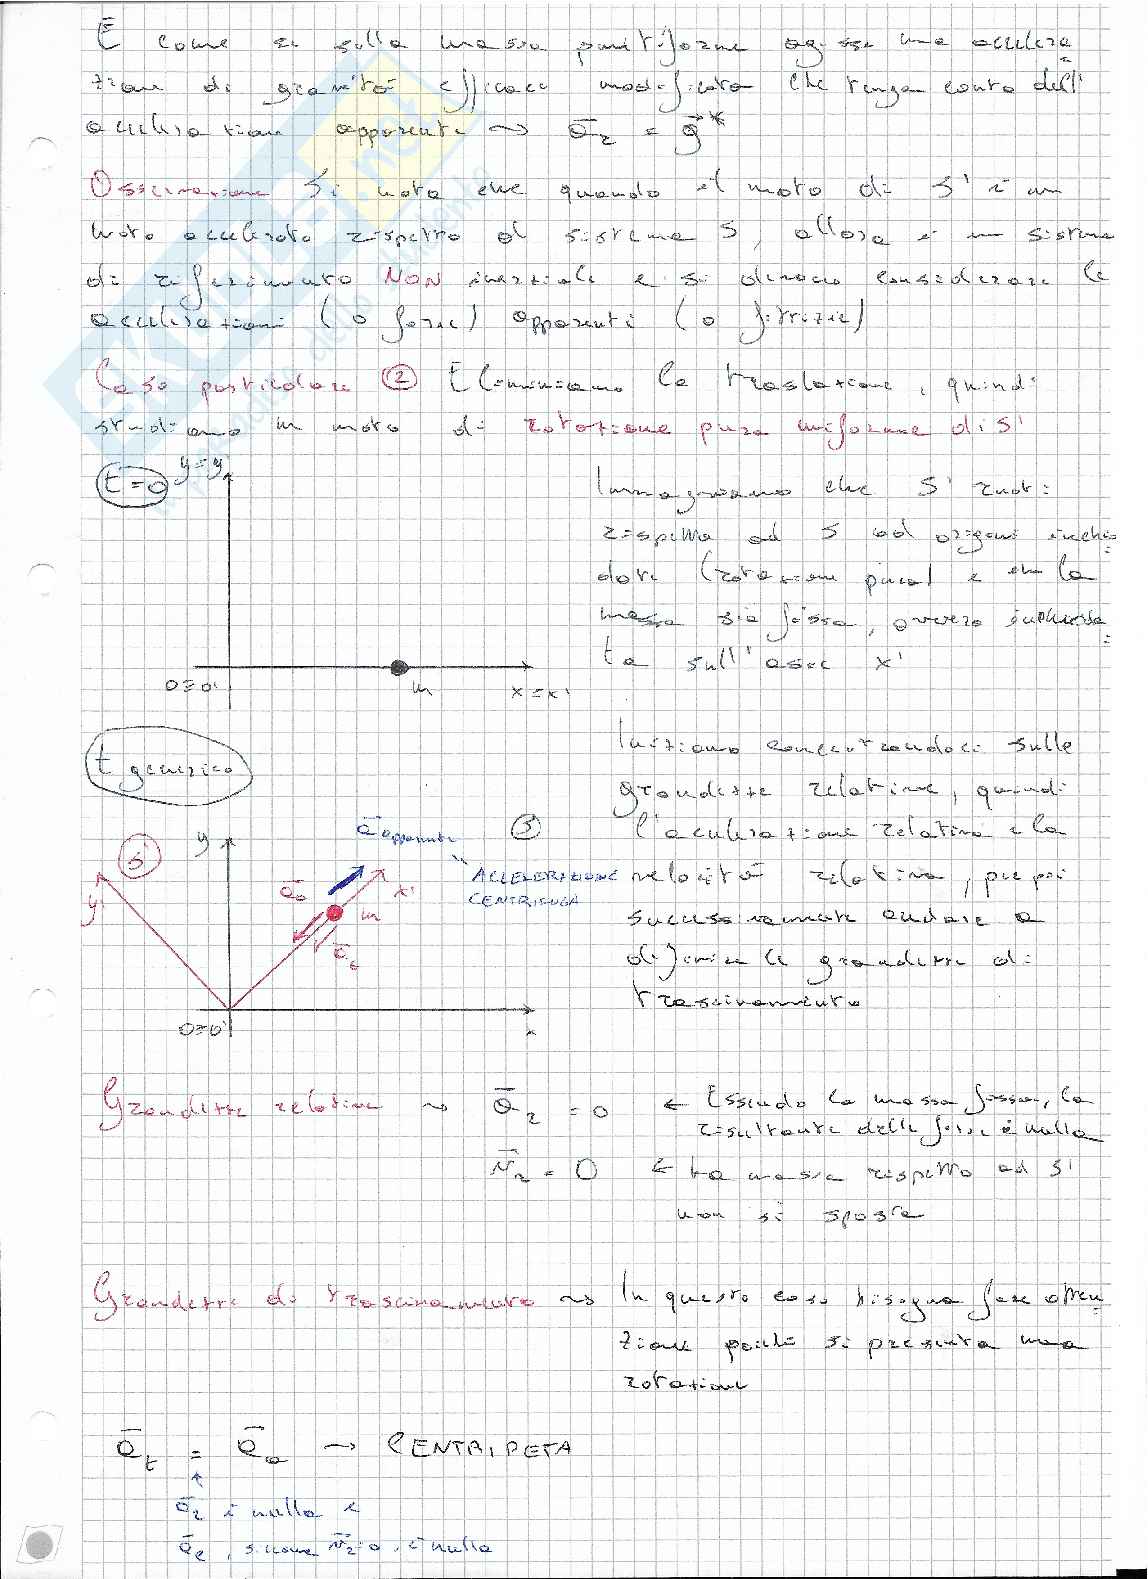 È come se sulla massa puntiforme agisse una accelera
zione di gravità efficace modificata che tenga conto dell'
accelerazione apparente ~> a_r = g*
Osservazione Si nota che quando il moto di S' è un
moto accelerato rispetto al sistema S, allora è un sistema
di riferimento NON inerziale e si devono considerare le
accelerazioni (o forze) apparenti (o fittizie)
Caso particolare ② Eliminiamo la traslazione, quindi
studiamo un moto di rotazione pura uniforme di S'
t=0
y=y'
O≡O'
m
x=x'
Immaginiamo che S' ruoti
rispetto ad S ad origini inchio
date (rotazione pura) e che la
massa sia fissa, ovvero
ta sull'asse x'
t generico
S'
y'
y
a_apparente
a_a
x'
m
a_t
O≡O'
x
ACCELERAZIONE
CENTRIFUGA
Iniziamo concentrandoci sulle
grandezze relative, quindi
l'accelerazione relativa e la
velocità relativa, per poi
successivamente andare a
definire le grandezze di
trascinamento
Grandezze relative ~> a_r = 0 ← Essendo la massa fissa, la
risultante delle forze è nulla
v_r = 0 ← La massa rispetto ad S'
non si sposta
Grandezze di trascinamento ~> In questo caso bisogna fare atten
zione poiché si presenta una
rotazione
a_t = a_a → CENTRIPETA
↑
a_r è nulla e
a_c, siccome v_r=0, è nulla
SKUOLA.net